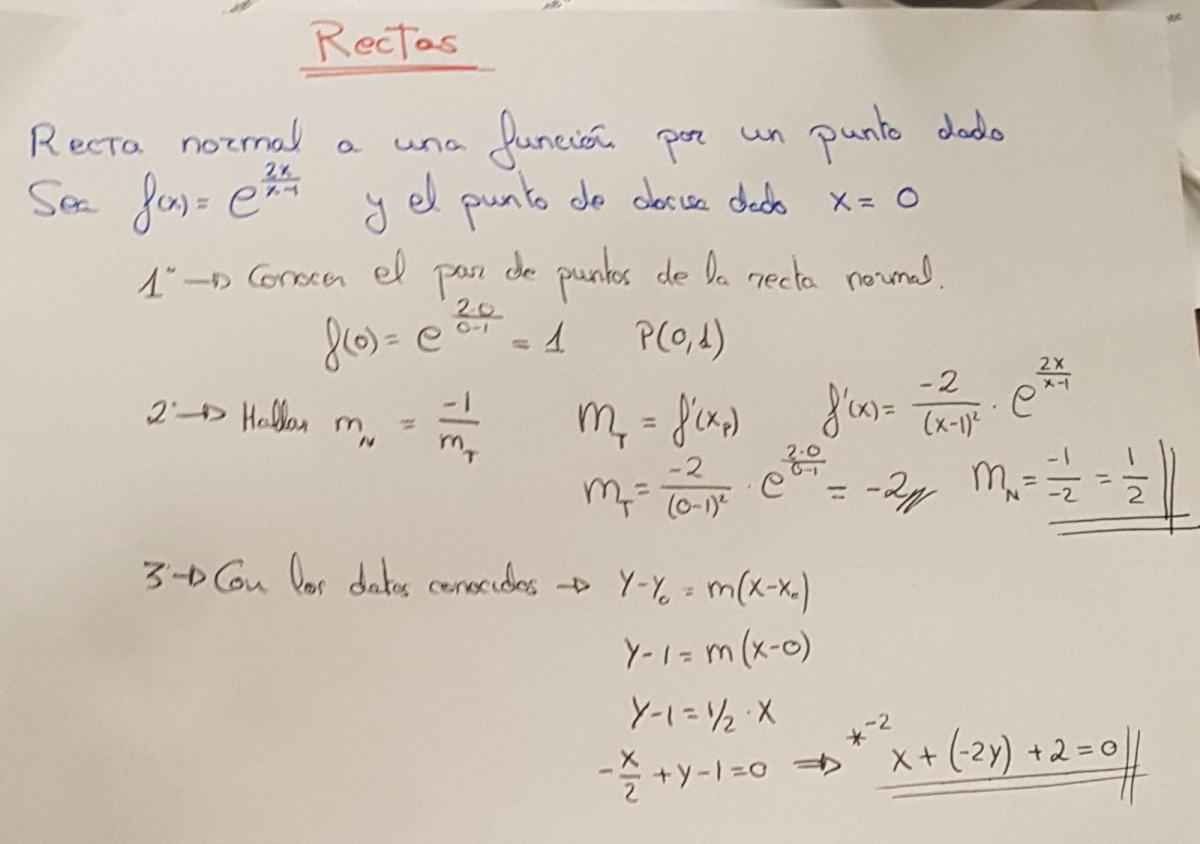 Rectas
Recta normal a una función por un punto dado
Sea f(x) = e^(2x/(x-1)) y el punto de abscisa dado x = 0
1° → Conocer el par de puntos de la recta normal.
f(0) = e^(2·0/(0-1)) = 1 P(0,1)
2° → Hallar m_N = -1/m_T m_T = f'(x_P) f'(x) = -2/(x-1)² · e^(2x/(x-1))
m_T = -2/(0-1)² · e^(2·0/(0-1)) = -2 m_N = -1/-2 = 1/2
3° → Con los datos conocidos → y-y₀ = m(x-x₀)
y-1 = m(x-0)
y-1 = 1/2 · x
-x/2 + y - 1 = 0 ⇒ *-2 x + (-2y) + 2 = 0